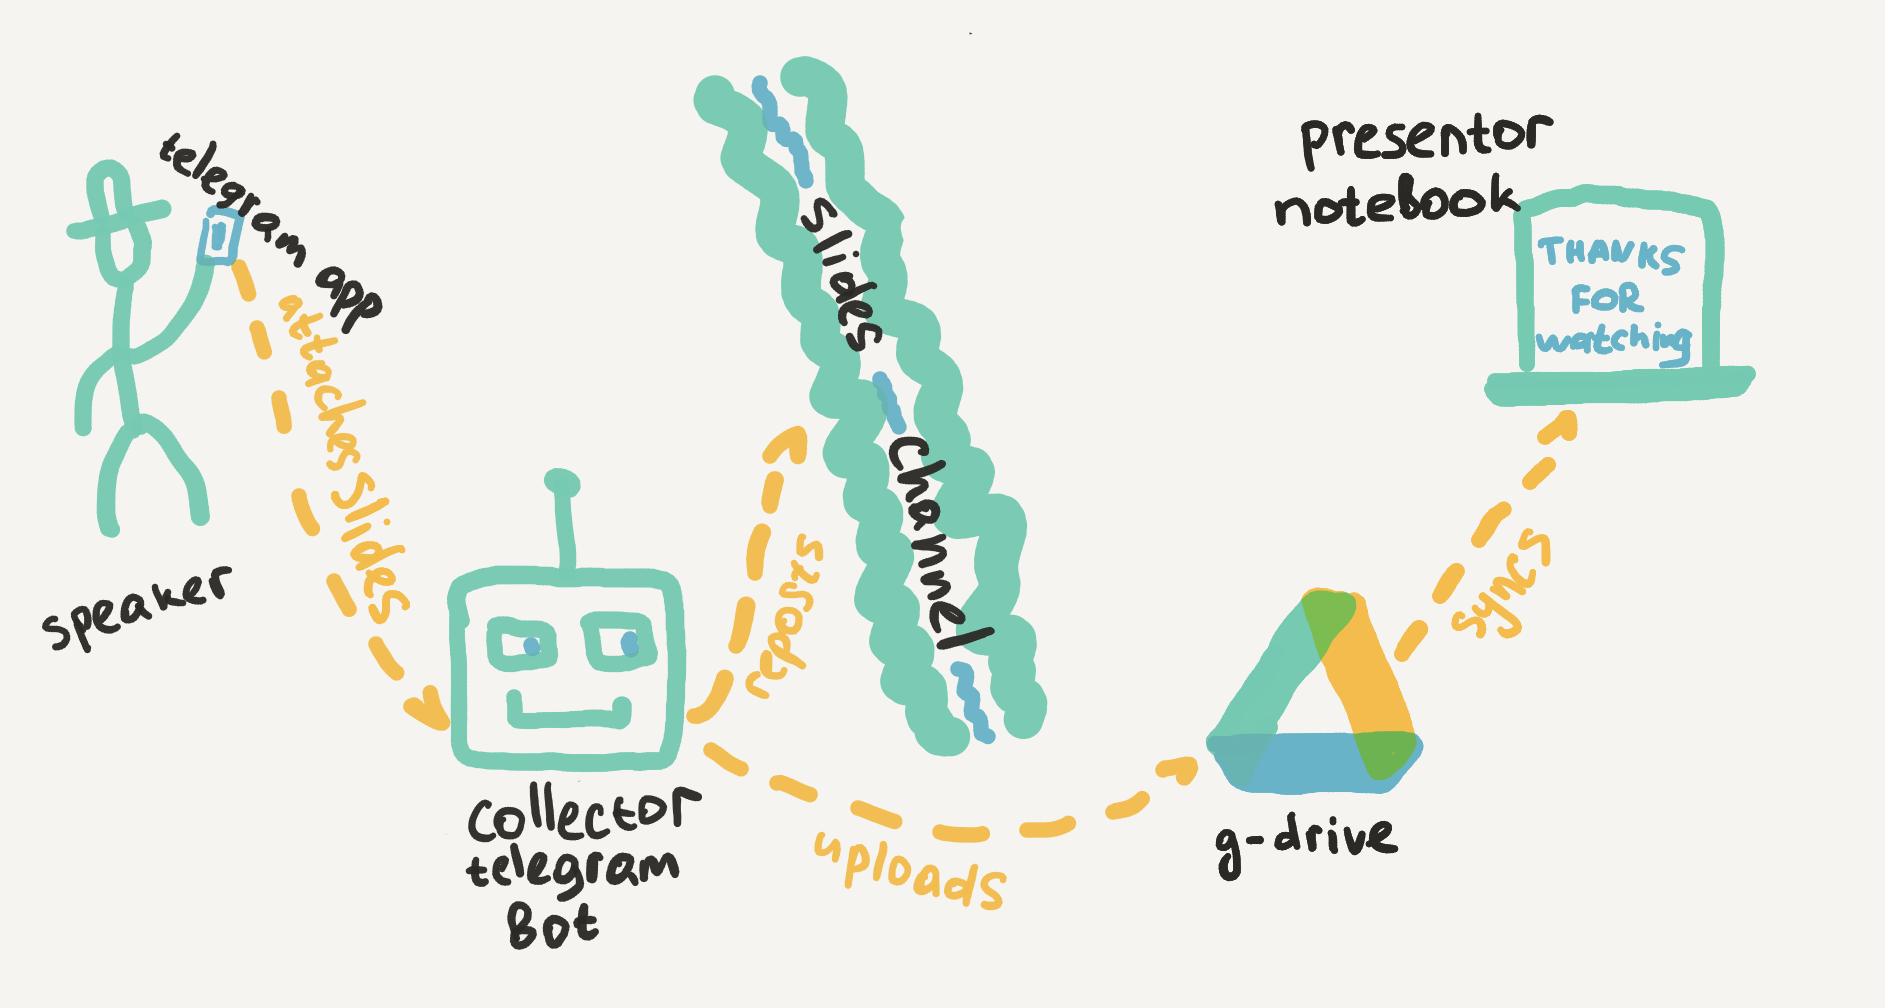 telegram app
attaches slides
speaker
collector
telegram
Bot
reposts
slides
Channel
uploads
g-drive
syncs
presentor
notebook
THANKS
FOR
watching